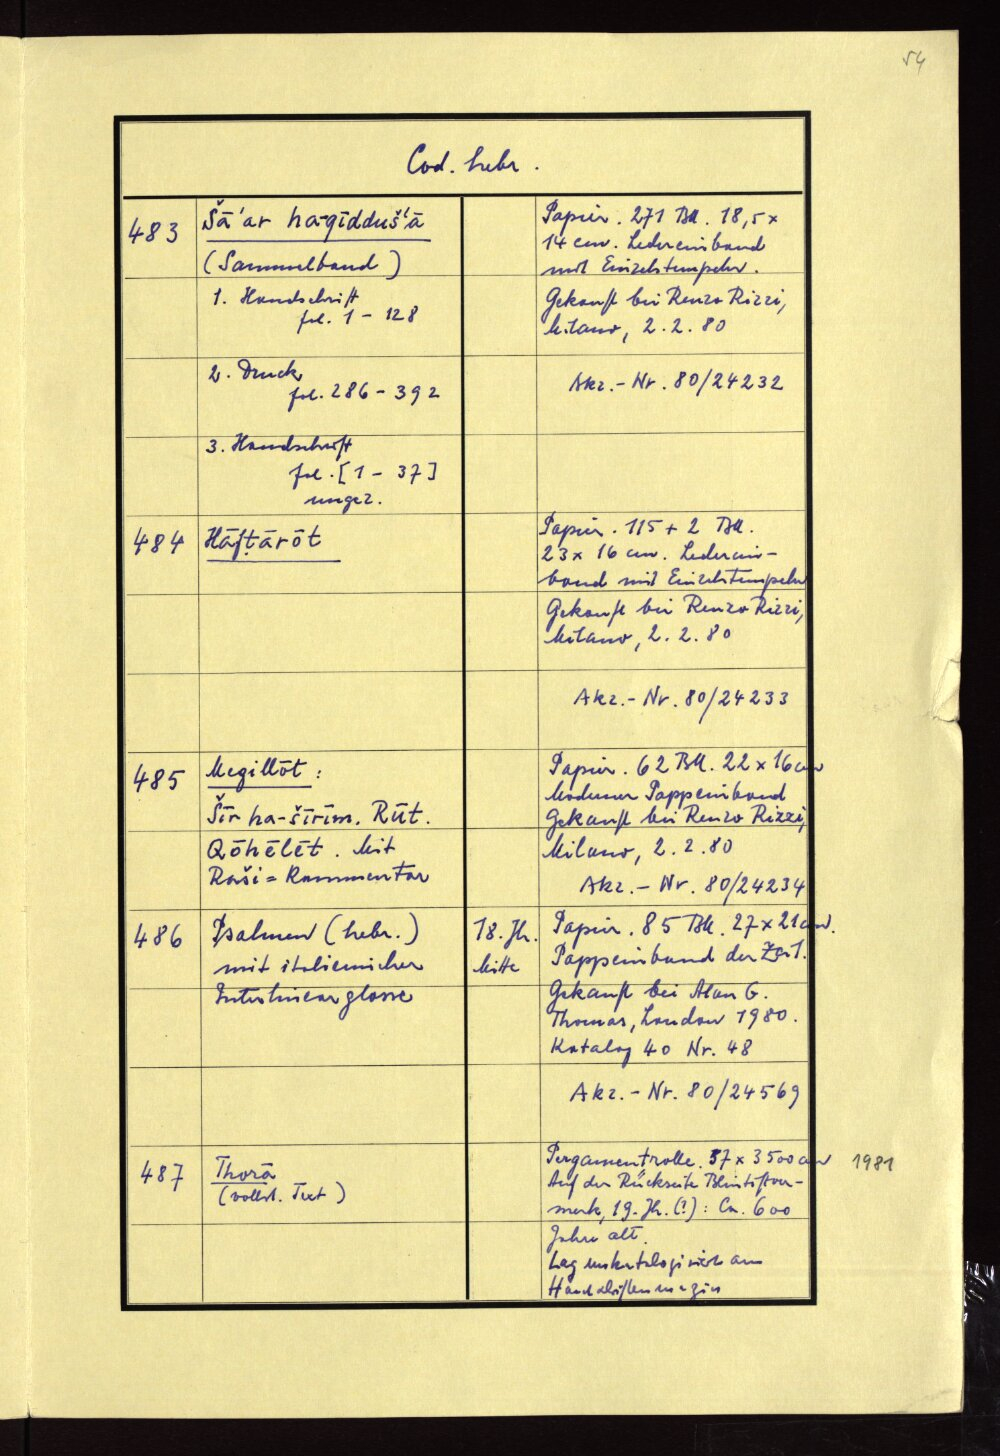 54
Cod. hebr.
483
Šā'ar ha-qīddūš'ā
(Sammelband)
1. Handschrift
fol. 1 - 128
2. Druck
fol. 286 - 392
3. Handschrift
fol. [1 - 37]
ungez.
Papier. 271 Bll. 18,5 x
14 cm. Ledereinband
mit Einzelstempeln.
Gekauft bei Renzo Rizzi,
Milano, 2. 2. 80
Akz.- Nr. 80/24232
484
Hāfṭārōt
Papier. 115 + 2 Bll.
23 x 16 cm. Lederein-
band mit Einzelstempeln
Gekauft bei Renzo Rizzi,
Milano, 2. 2. 80
Akz.- Nr. 80/24233
485
Megillōt :
Šīr ha-šīrīm. Rūt.
Qōhēlēt. Mit
Raši = Kommentar
Papier. 62 Bll. 22 x 16 cm
Moderner Pappeinband
Gekauft bei Renzo Rizzi,
Milano, 2. 2. 80
Akz.- Nr. 80/24234
486
Psalmen (hebr.)
mit italienischer
Interlinearglosse
18. Jh.
Mitte
Papier. 85 Bll. 27 x 21 cm.
Pappeinband der Zeit.
Gekauft bei Alan G.
Thomas, London 1980.
Katalog 40 Nr. 48
Akz.- Nr. 80/24569
487
Thorā
(vollst. Text)
Pergamentrolle. 57 x 3500 cm
Auf der Rückseite Bleistiftver-
merk, 19. Jh. (?) : Ca. 600
Jahre alt.
Lag unkatalogisiert am
Handschriftenmagazin
1981